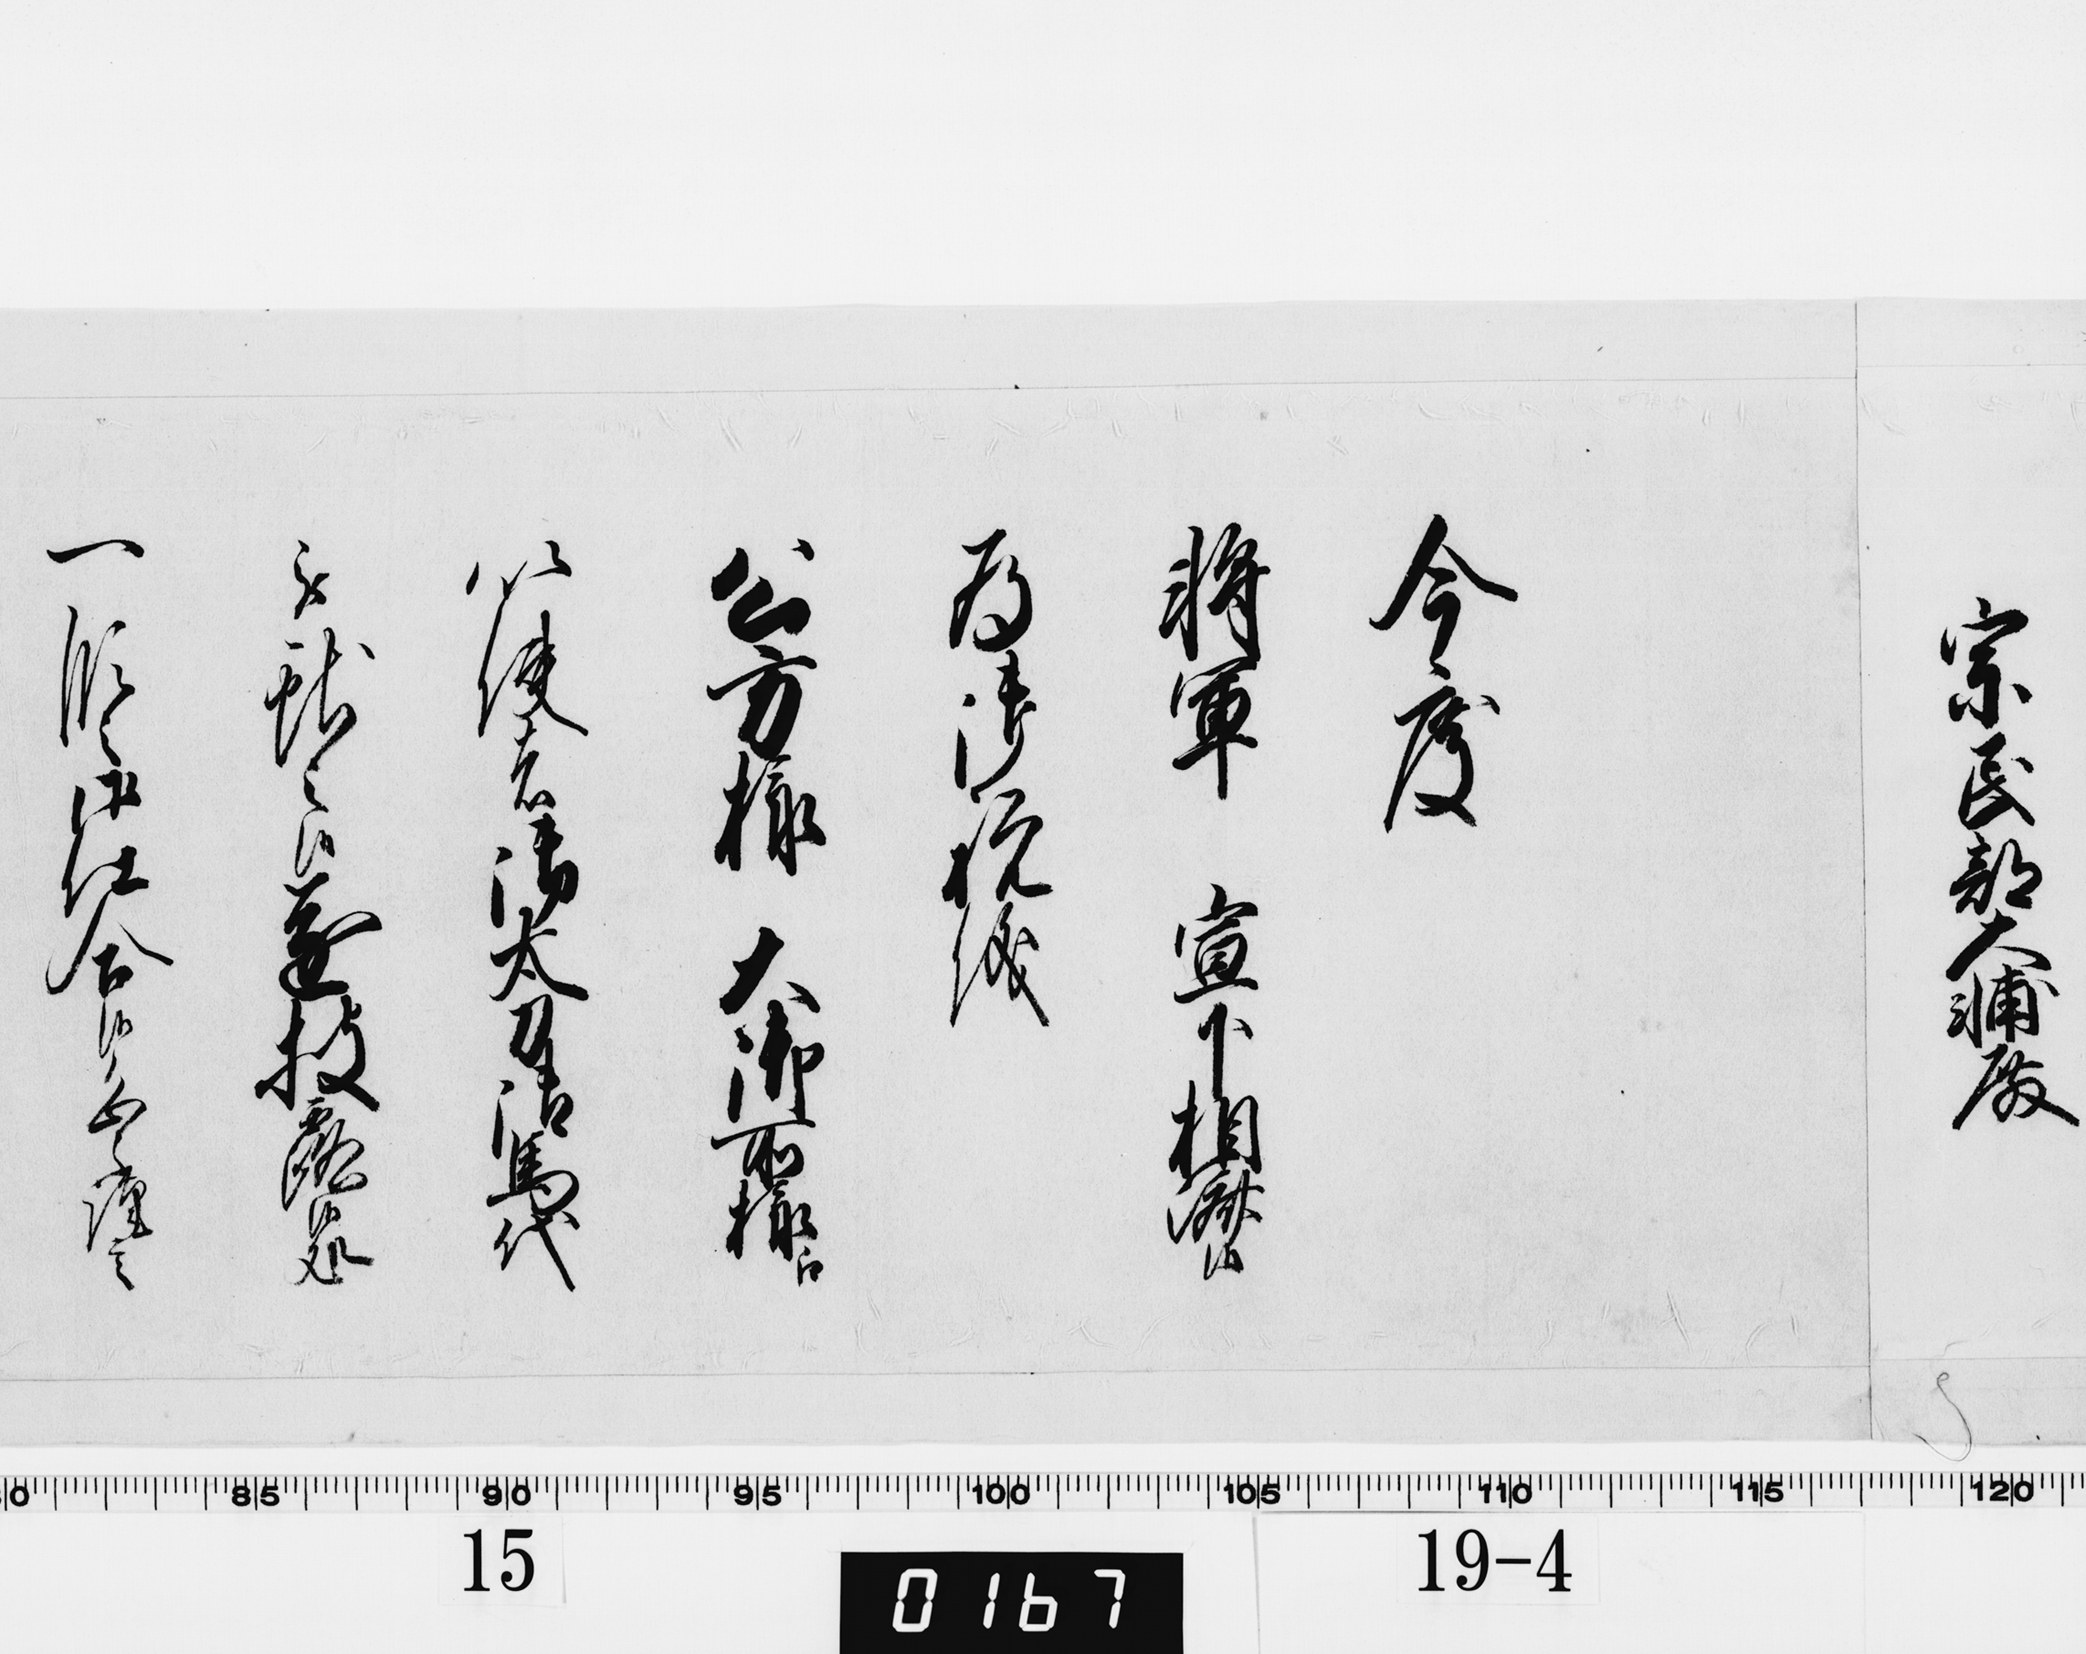 宗民部大輔殿
今度
将軍　宣下相済候
為御祝儀
公方様　大御所様江
以使者御太刀御馬代
献之候遂披露候処
一段之御仕合候恐々謹言
80 85 90 95 100 105 110 115 120
15 0167 19-4